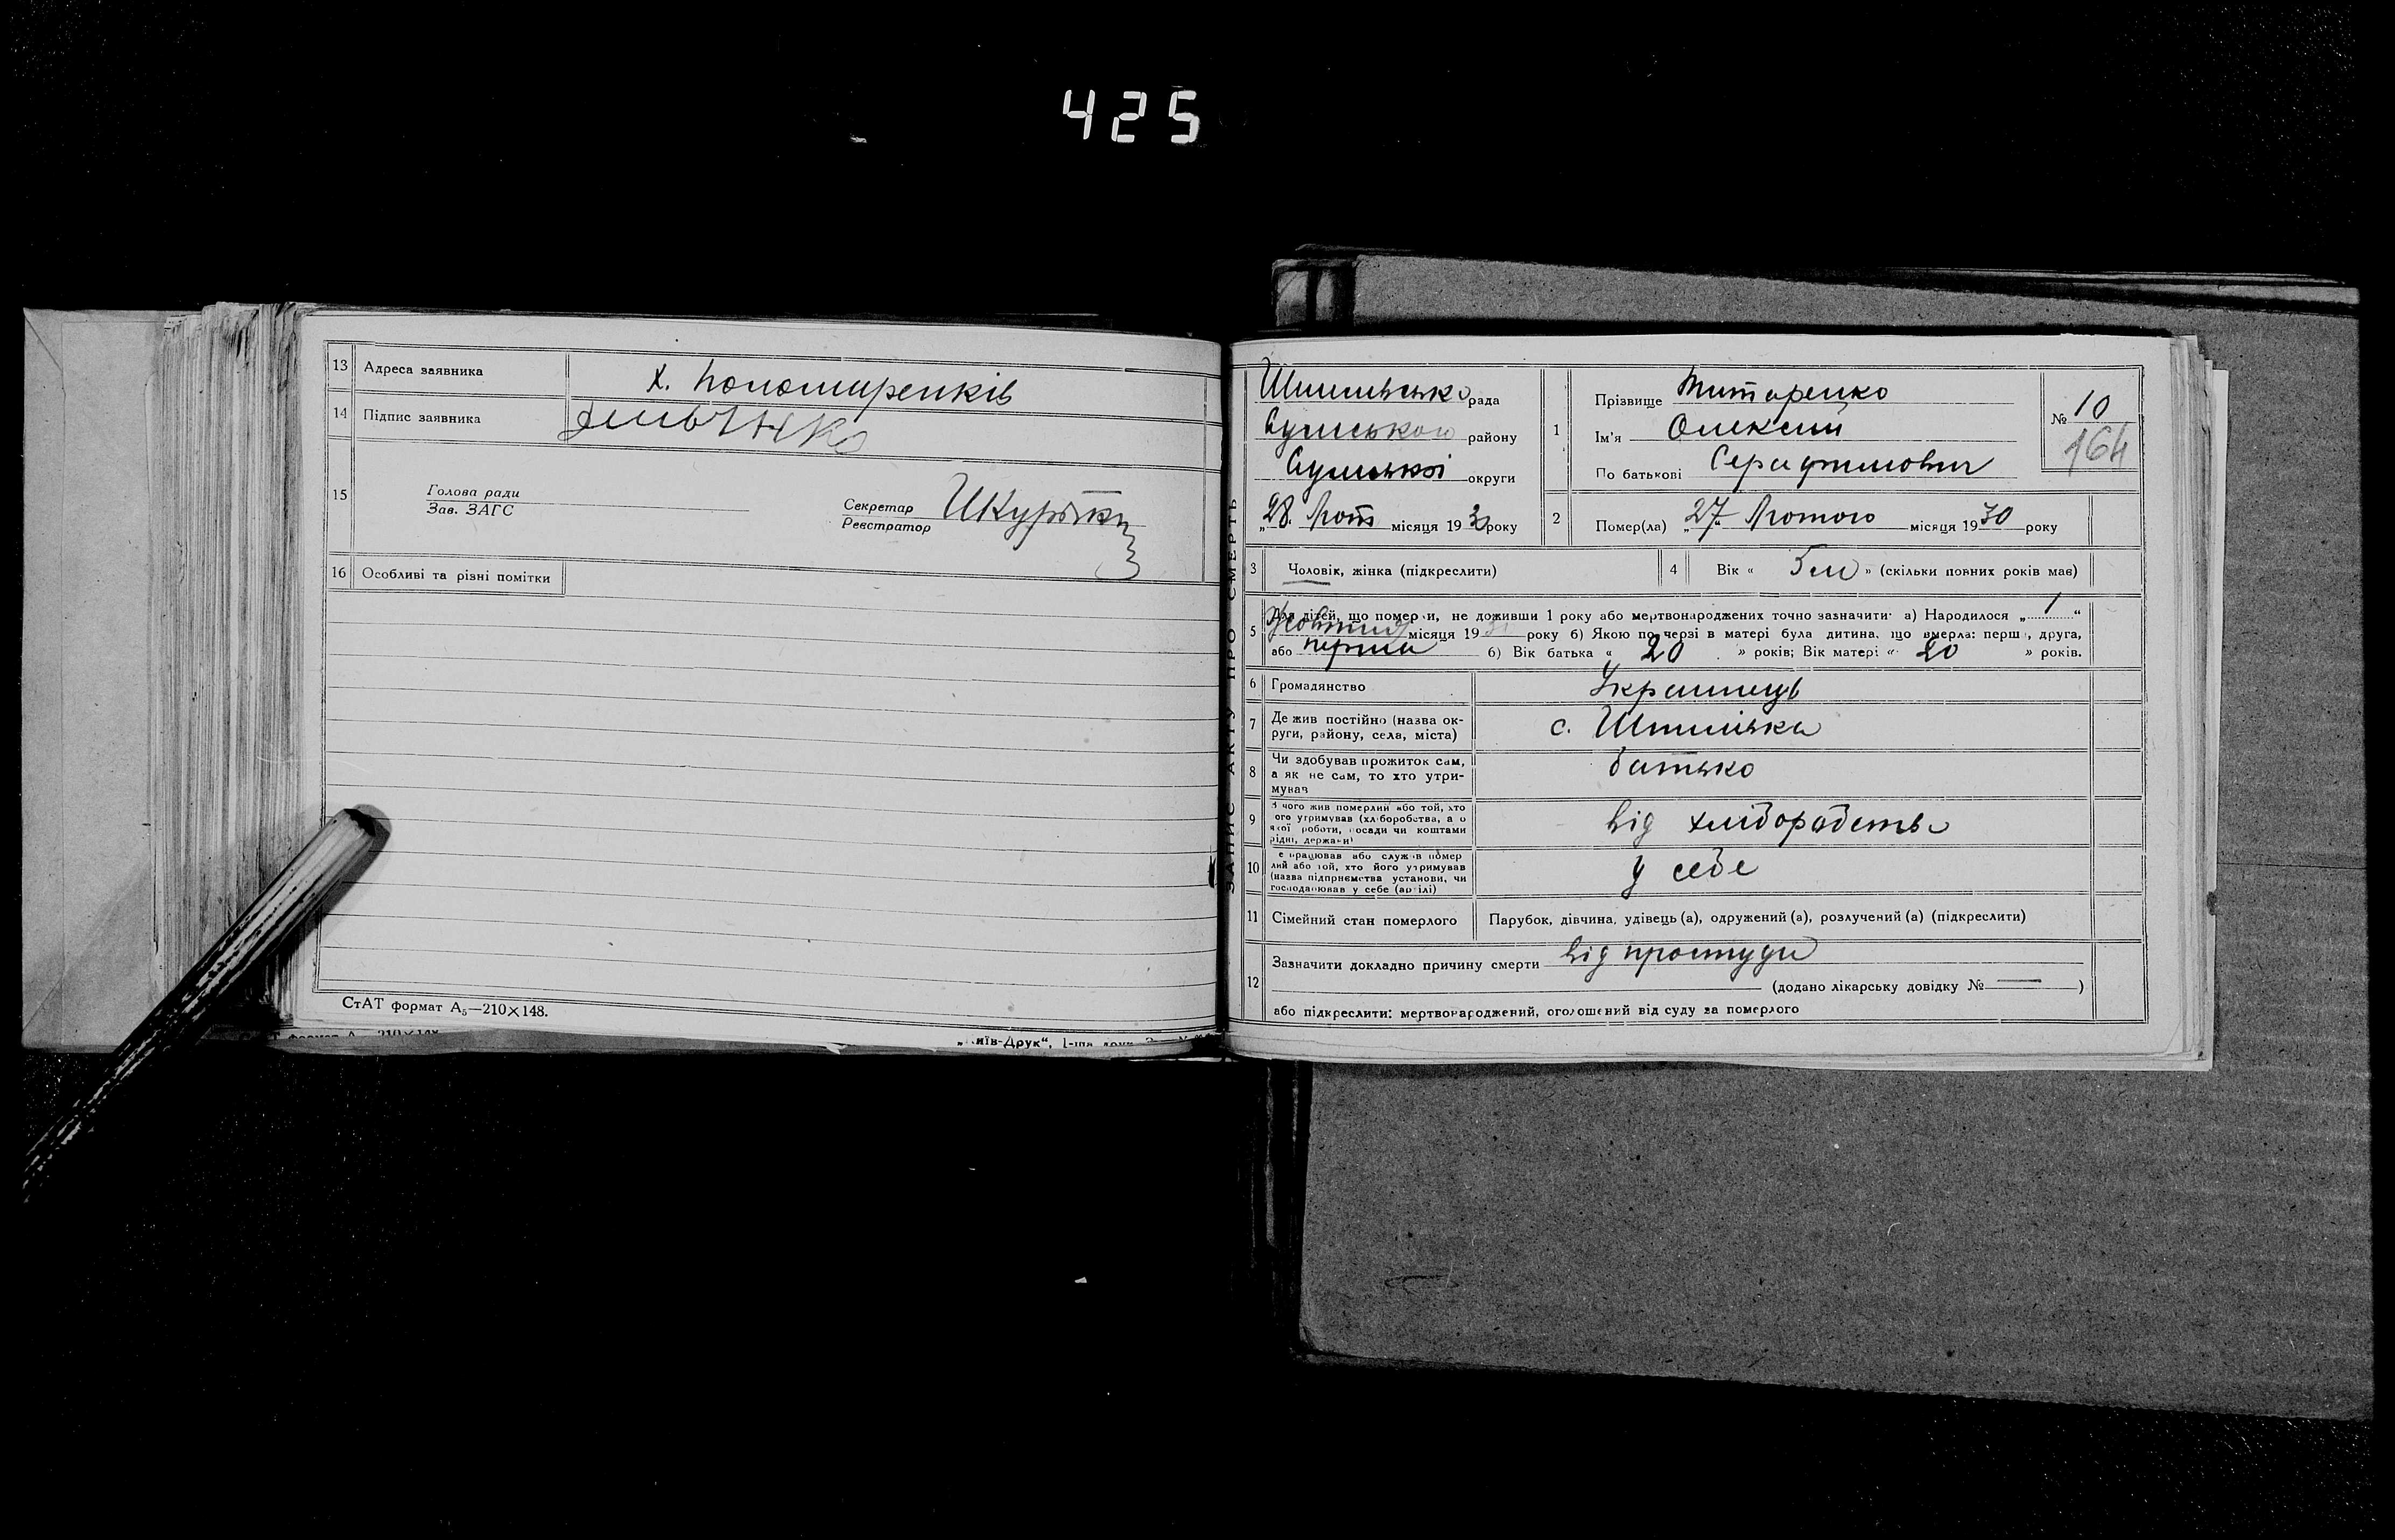 425
13 Адреса заявника х. Пономаренків
14 Підпис заявника
15 Голова ради
Зав. ЗАГС
Секретар
Реєстратор
16 Особливі та різні помітки
СтАТ формат А₅—210×148.
ЗАПИС АКТУ ПРО СМЕРТЬ
рада
Сумського району
Сумської округи
„28. Лют місяця 1930 року
1 Прізвище Титаренко
Ім'я Олексій
По батькові Серафимович
№ 10
164
2 Помер(ла) „27“ Лютого місяця 1930 року
3 Чоловік, жінка (підкреслити)
4 Вік « 5 м » (скільки повних років має)
5 Для дітей, що померли, не доживши 1 року або мертвонароджених точно зазначити: а) Народилося „ 1 “
Жовтня місяця 19 року б) Якою по черзі в матері була дитина, що вмерла: перша, друга,
або перша б) Вік батька « 20 » років; Вік матері « 20 » років.
6 Громадянство Українець
7 Де жив постійно (назва ок-
руги, району, села, міста) с. Шпилівка
8 Чи здобував прожиток сам,
а як не сам, то хто утри-
мував батько
9 З чого жив померлий або той, хто
його утримував (хліборобства, а о
якої роботи, посади чи коштами
рідні, держави) від хліборобства
10 Де працював або служив помер
лий або той, хто його утримував
(назва підприємства установи, чи
господарював у себе (артілі) у себе
11 Сімейний стан померлого Парубок, дівчина, удівець (а), одружений (а), розлучений (а) (підкреслити)
12 Зазначити докладно причину смерти від простуди
(додано лікарську довідку № — )
або підкреслити: мертвонароджений, оголошений від суду за померлого